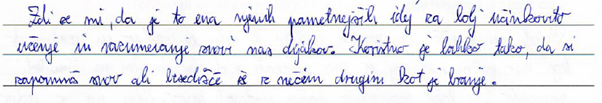 Zdi se mi, da je to ena njenih pametnejših idej za bolj učinkovito
učenje in razumevanje snovi nas dijakov. Koristno je lahko tako, da si
zapomniš snov ali besedišče še z nečim drugim kot je branje.